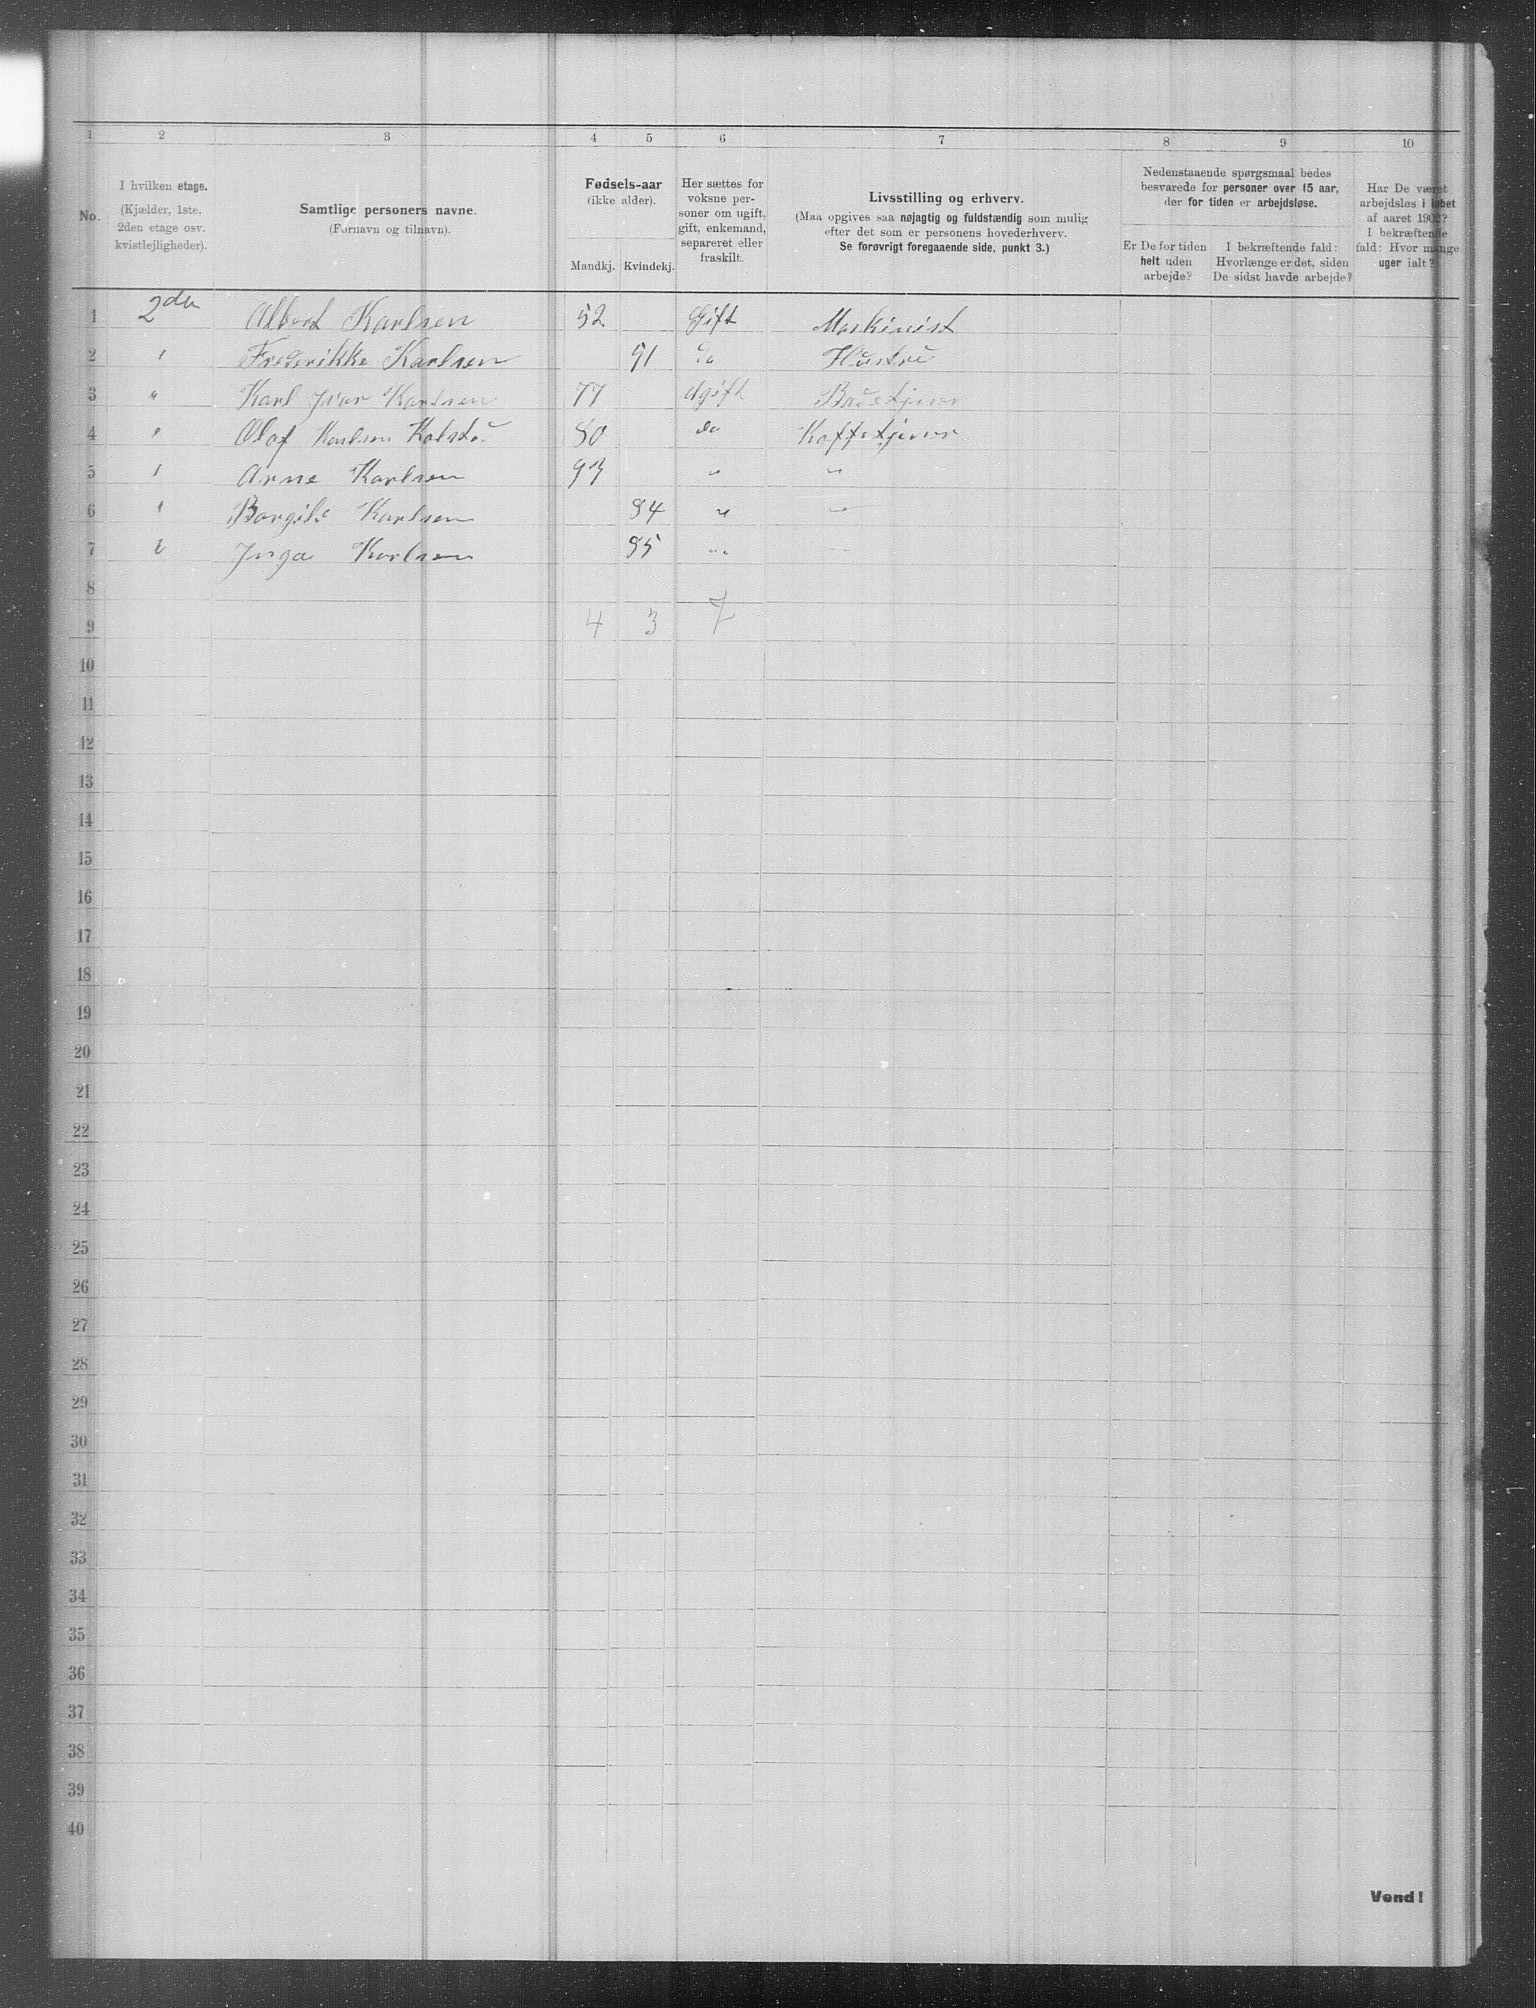 1 2 3 4 5 6 7 8 9 10
No.
I hvilken etage.
(Kjælder, 1ste,
2den etage osv.
kvistlejligheder).
Samtlige personers navne.
(Fornavn og tilnavn).
Fødsels-aar
(ikke alder).
Mandkj. Kvindekj.
Her sættes for
voksne per-
soner om ugift,
gift, enkemand,
separeret eller
fraskilt.
Livsstilling og erhverv.
(Maa opgives saa nøjagtig og fuldstændig som mulig
efter det som er personens hovederhverv.
Se forøvrigt foregaaende side, punkt 3.)
Nedenstaaende spørgsmaal bedes
besvarede for personer over 15 aar,
der for tiden er arbejdsløse.
Er De for tiden
helt uden
arbejde?
I bekræftende fald:
Hvorlænge er det, siden
De sidst havde arbejde?
Har De været
arbejdsløs i løbet
af aaret 1902?
I bekræftende
fald: Hvor mange
uger ialt?
1 2den Albert Karlsen 52 Gift Maskinist
2 " Frederikke Karlsen 51 do Hustru
3 " Karl Ivar Karlsen 77 Ugift
4 " Olaf Karlsen 80 do
5 " Arne Karlsen 93 " "
6 " Borgild Karlsen 84 " "
7 " Inga Karlsen 95 " "
8
9 4 3 7
10
11
12
13
14
15
16
17
18
19
20
21
22
23
24
25
26
27
28
29
30
31
32
33
34
35
36
37
38
39
40
Vend!